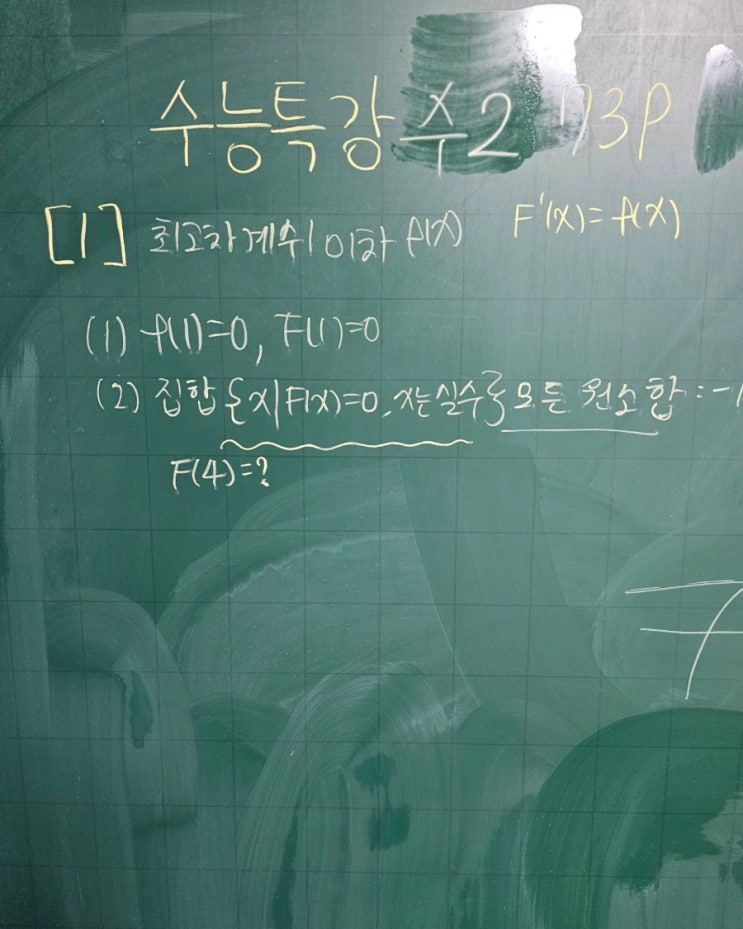 수능특강 수2 73P
[1] 최고차계수 1 이차 f(x) F'(x)=f(x)
(1) f(1)=0, F(1)=0
(2) 집합 {x|F(x)=0, x는 실수} 모든 원소 합 : -1
F(4)=?